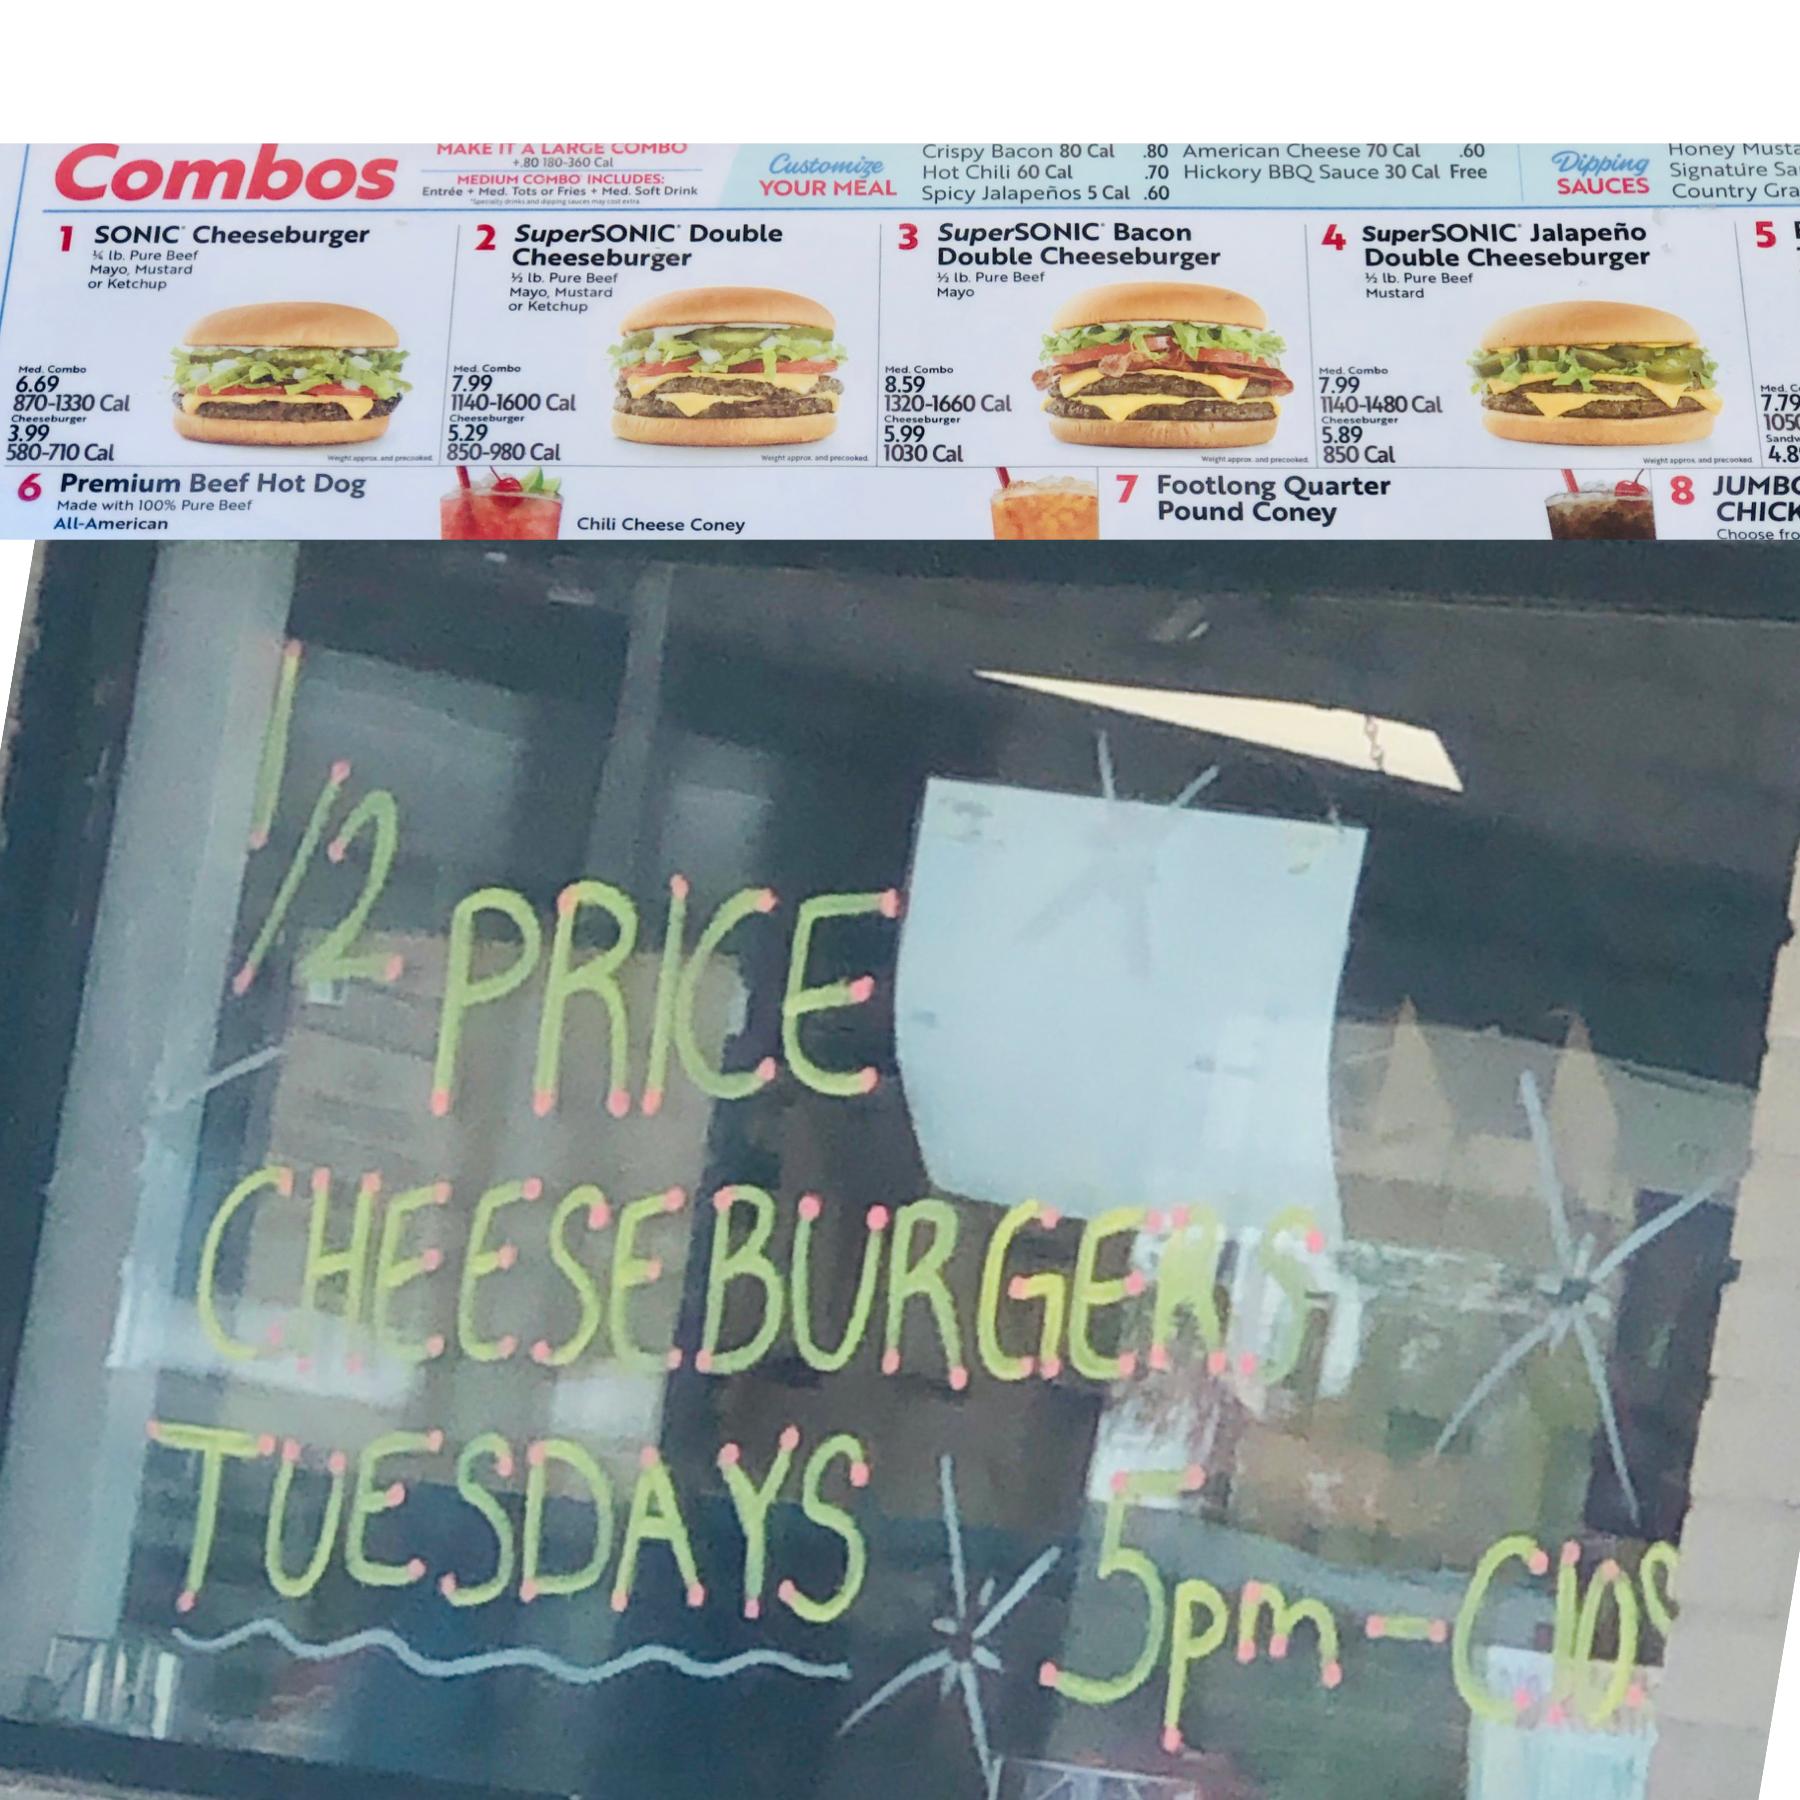 Combos
MAKE IT A LARGE COMBO
+.80 180-360 Cal
MEDIUM COMBO INCLUDES:
Entrée + Med. Tots or Fries + Med. Soft Drink
*Specialty drinks and dipping sauces may cost extra.
Customize
YOUR MEAL
Crispy Bacon 80 Cal .80 American Cheese 70 Cal .60
Hot Chili 60 Cal .70 Hickory BBQ Sauce 30 Cal Free
Spicy Jalapeños 5 Cal .60
Dipping
SAUCES
Honey
Signature
Country
1 SONIC Cheeseburger
¼ lb. Pure Beef
Mayo, Mustard
or Ketchup
Med. Combo
6.69
870-1330 Cal
Cheeseburger
3.99
580-710 Cal
Weight approx. and precooked.
2 SuperSONIC Double
Cheeseburger
½ lb. Pure Beef
Mayo, Mustard
or Ketchup
Med. Combo
7.99
1140-1600 Cal
Cheeseburger
5.29
850-980 Cal
Weight approx. and precooked.
3 SuperSONIC Bacon
Double Cheeseburger
½ lb. Pure Beef
Mayo
Med. Combo
8.59
1320-1660 Cal
Cheeseburger
5.99
1030 Cal
Weight approx. and precooked.
4 SuperSONIC Jalapeño
Double Cheeseburger
½ lb. Pure Beef
Mustard
Med. Combo
7.99
1140-1480 Cal
Cheeseburger
5.89
850 Cal
Weight approx. and precooked.
5
Med.
7.79
6 Premium Beef Hot Dog
Made with 100% Pure Beef
All-American
Chili Cheese Coney
7 Footlong Quarter
Pound Coney
8
Choose
1/2 PRICE
CHEESEBURGERS
TUESDAYS 5pm-Clos